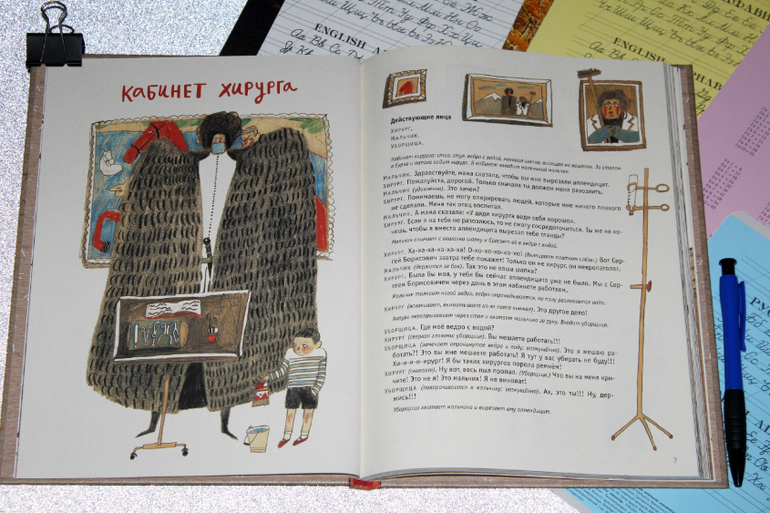 КАБИНЕТ ХИРУРГА
Действующие лица
ХИРУРГ,
МАЛЬЧИК,
УБОРЩИЦА.
Кабинет хирурга: стол, стул, ведро с водой, меховая шапка, висящая на вешалке. За столом
в бурке и папахе сидит хирург. В кабинет заходит маленький мальчик.
МАЛЬЧИК. Здравствуйте, мама сказала, чтобы вы мне вырезали аппендицит.
ХИРУРГ. Пожалуйста, дорогой. Только сначала ты должен меня разозлить.
МАЛЬЧИК (удивлённо). Это зачем?
ХИРУРГ. Понимаешь, не могу оперировать людей, которые мне ничего плохого
не сделали. Меня так отец воспитал.
МАЛЬЧИК. А мама сказала: «У дяди хирурга веди себя хорошо».
ХИРУРГ. Если я на тебя не разозлюсь, то не смогу сосредоточиться. Ты же не хо-
чешь, чтобы я вместо аппендицита вырезал тебе гланды?
Мальчик стягивает с вешалки шапку и бросает её в ведро с водой.
ХИРУРГ. Ха-ха-ха-ха-ха! О-хо-хо-хо-хо-хо! (Вытирает платком слёзы.) Вот Сер-
гей Борисович завтра тебе покажет! Только он не хирург, он невропатолог.
МАЛЬЧИК (держится за бок). Так это не ваша шапка?
ХИРУРГ. Была бы моя, у тебя бы сейчас аппендицита уже не было. Мы с Сер-
геем Борисовичем через день в этом кабинете работаем.
Мальчик толкает ногой ведро, ведро опрокидывается, по полу разливается вода.
ХИРУРГ (вскакивает, выхватывает из-за пояса кинжал). Это другое дело!
Хирург перепрыгивает через стол и хватает мальчика за руку. Входит уборщица.
УБОРЩИЦА. Где моё ведро с водой?
ХИРУРГ (сверкая глазами). Вы мешаете работать!!!
УБОРЩИЦА (замечает опрокинутое ведро и воду, возмущённо). Это я мешаю ра-
ботать?! Это вы мне мешаете работать! Я тут у вас убирать не буду!!!
Хи-и-и-и-хирург! Я бы таких хирургов порола ремнём!
ХИРУРГ (сникает). Ну вот, весь пыл пропал. (Уборщице.) Что вы на меня кри-
чите! Это не я! Это мальчик! Я не виноват!
УБОРЩИЦА (поворачивается к мальчику, возмущённо). Ах, это ты!!! Ну, дер-
жись!!!
Уборщица хватает мальчика и вырезает ему аппендицит.
7
ENGLISH
ENGLISH